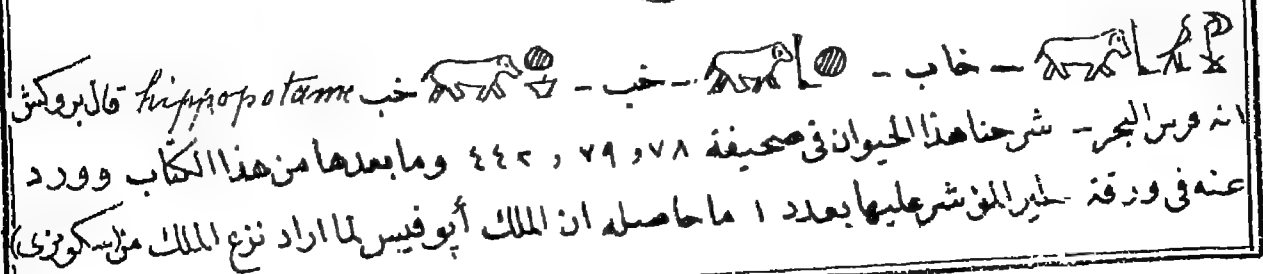 𓆼𓄿𓃀𓃯 - خاب - 𓐍𓃀𓃯 - خب - 𓐍𓎼𓃯 خب hippopotame قال بروكش
انه فرس البحر - شرحنا هذا الحيوان فى صحيفة ٧٨ و ٧٩ و ٤٤٢ وما بعدها من هذا الكتاب وورد
عنه فى ورقة المؤشر عليها بعدد ١ ما حاصله ان الملك أپوفيس لما اراد نزع الملك من